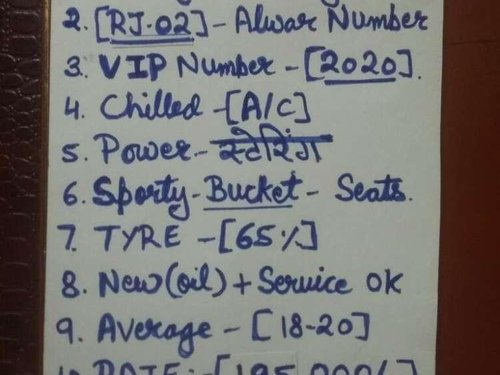 2. [RJ-02] - Alwar Number
3. VIP Number - [2020].
4. Chilled - [A/C]
5. Power - स्टेरिंग
6. Sporty - Bucket - Seats.
7. TYRE - [65%]
8. New (oil) + Service OK
9. Average - [18-20]
10. RATE: - [195,000/-]